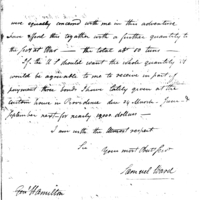 was equally concerned with me in this adventure
I have offered this together with a further quantity to
the Sec. at War — the total abt 50 tons —
If the U S should want the whole quantity it
would be agreeable to me to receive in part of
payment those bonds I have lately given at the
custom house in Providence due 24 March - June -
September next for nearly 19000 dollars —
I am with the utmost respect
Sir
Your most Obedt Servt
Samuel Ward
Genl Hamilton